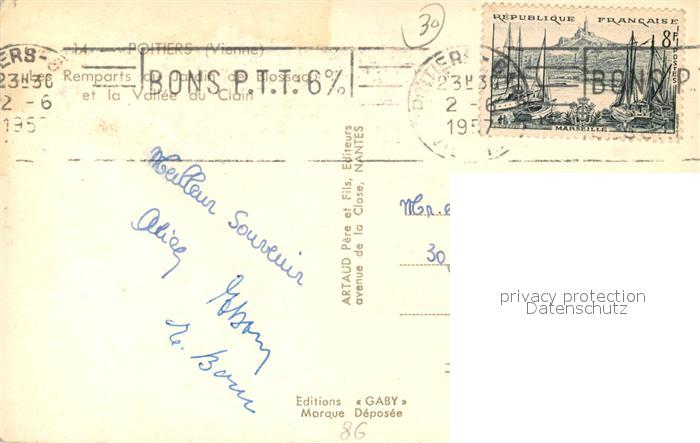 14 — POITIERS (Vienne)
Les Remparts du Jardin de Blossac
et la Vallée du Clain
POITIERS
23H30
2 - 6
1957
BONS P.T.T. 6%
30
POITIERS
23H30
2 - 6
1957
BONS
RÉPUBLIQUE FRANÇAISE
8F
POSTES
MARSEILLE
Meilleur Souvenir
ARTAUD Père et Fils, Editeurs
avenue de la Close, NANTES
Mr.
30
privacy protection
Datenschutz
Editions « GABY »
Marque Déposée
86